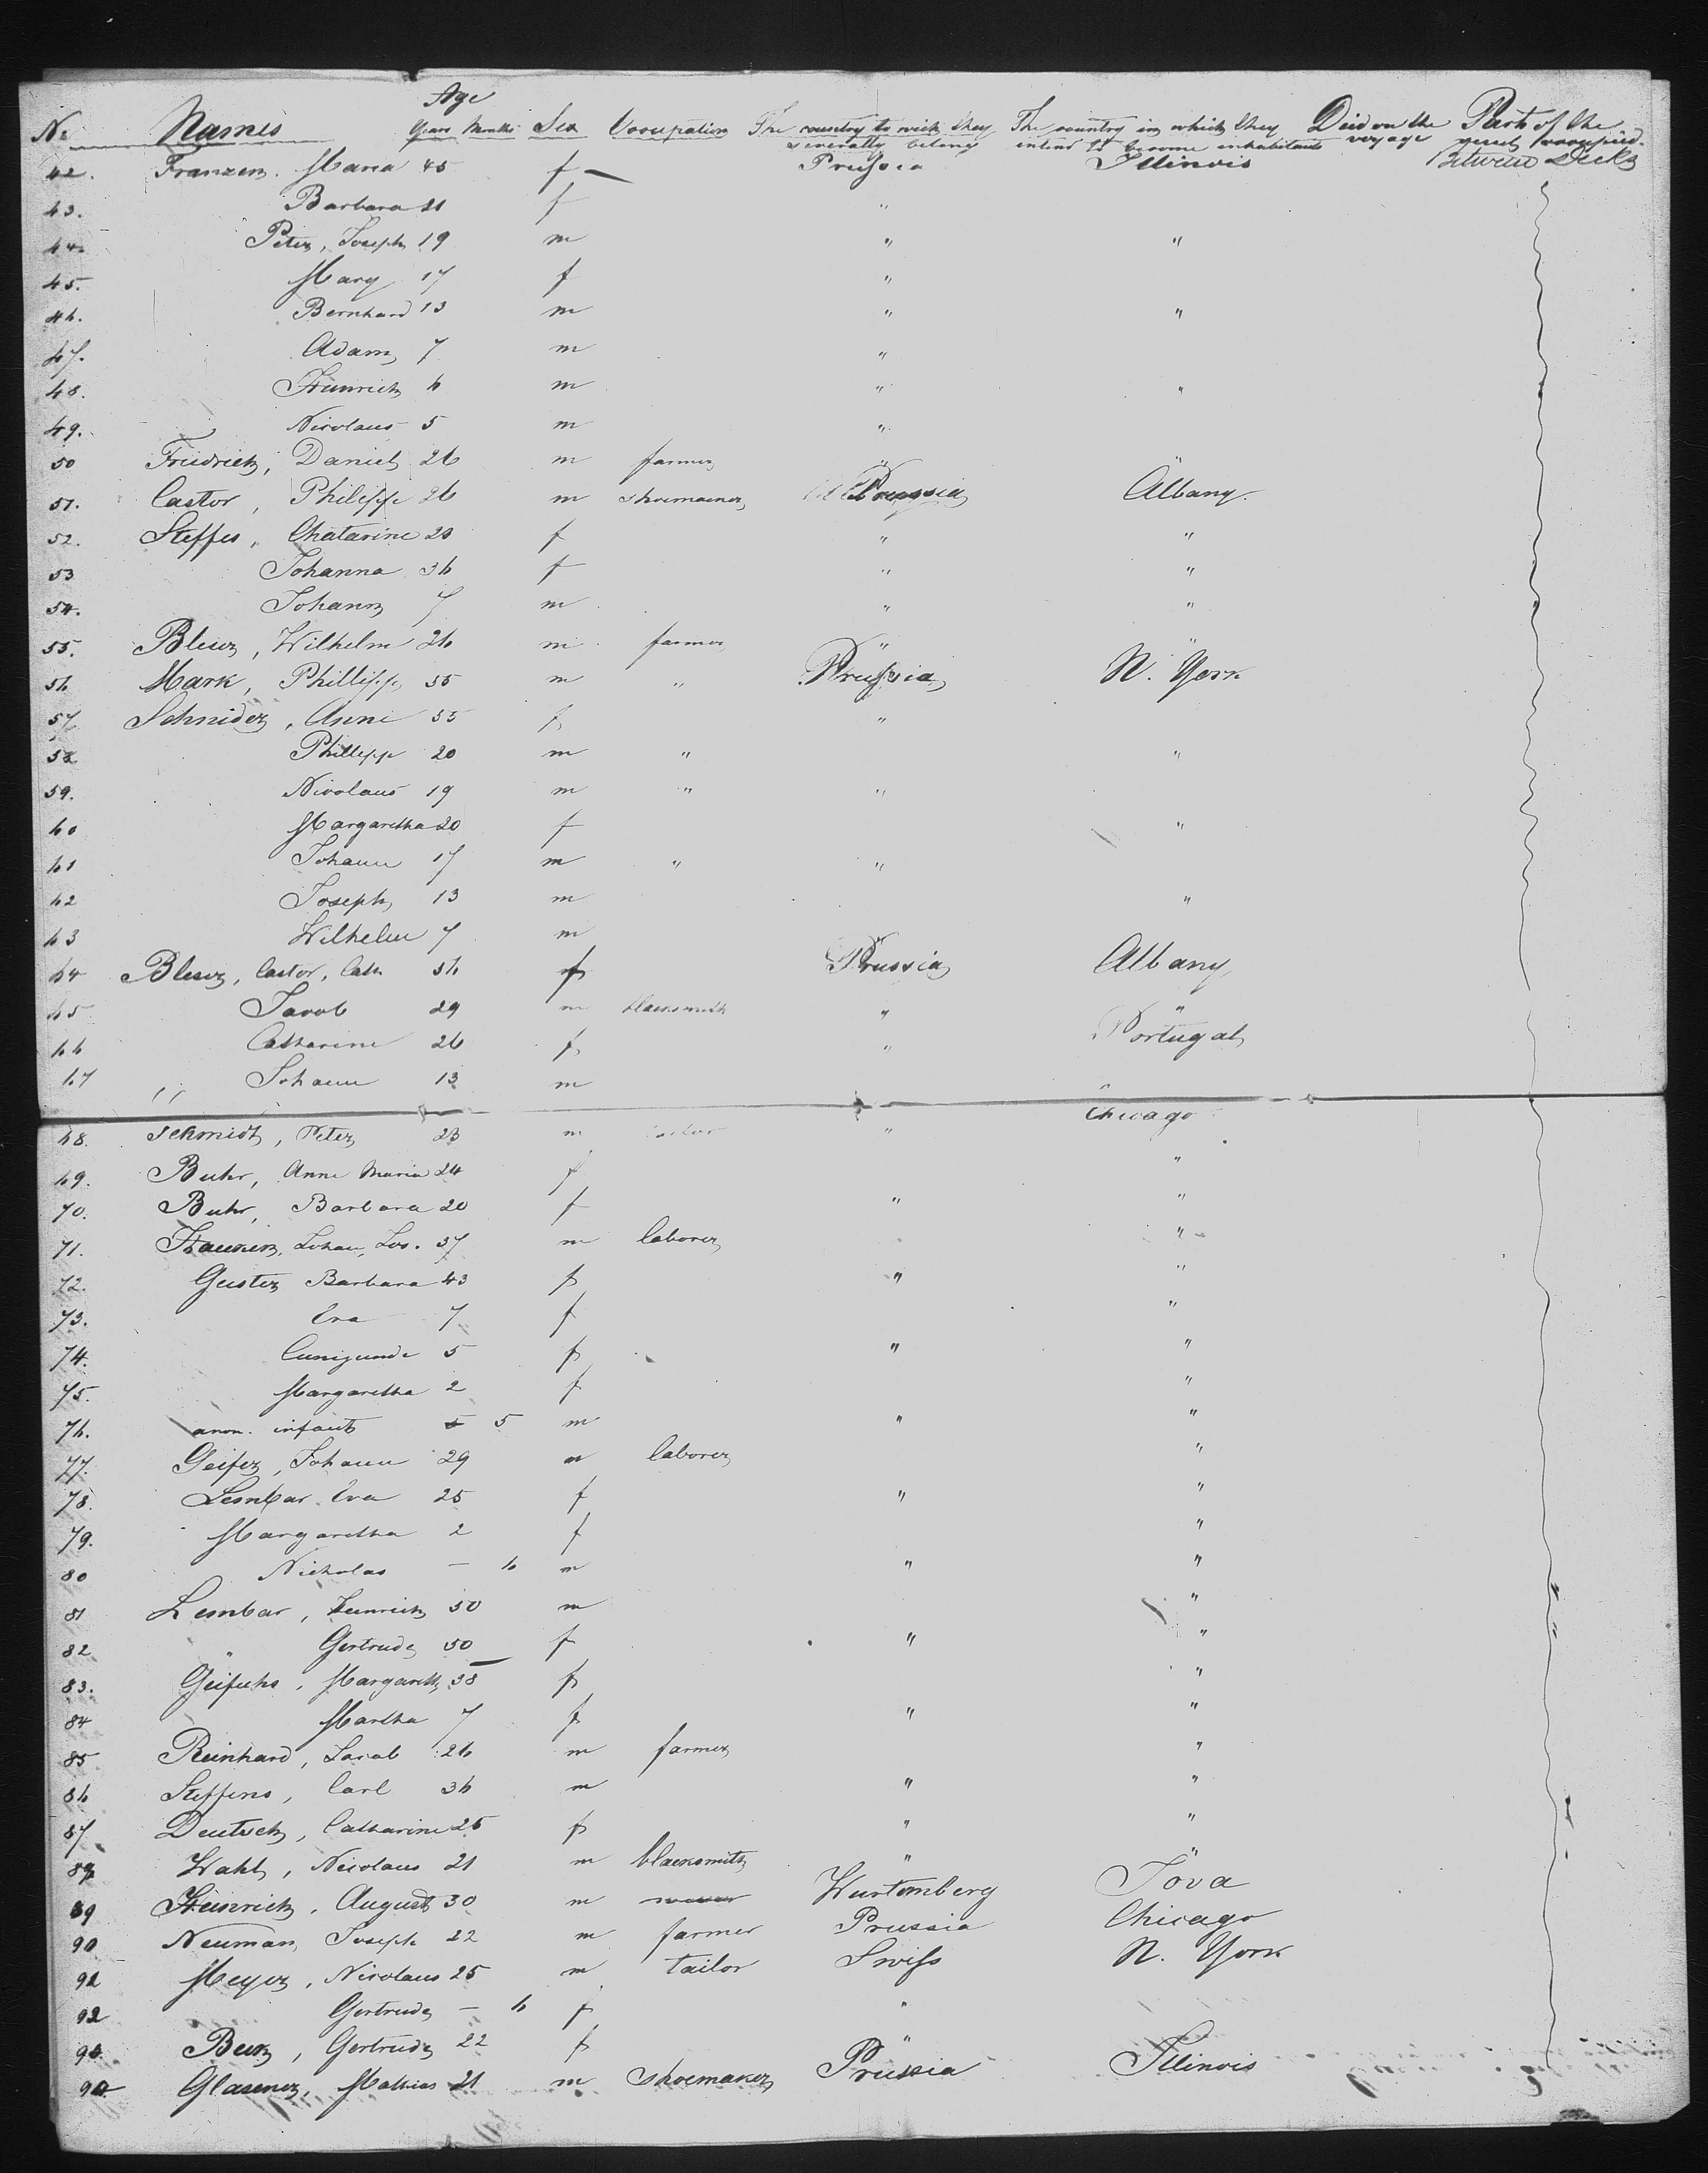 Age
No Names Years Months Sex Occupation The country to wich they severally belong The country in which they intend to become inhabitants Died on the voyage Part of the vessel occupied.
42. Franzen. Maria 45 f Prussia Illinois Between Decks
43. Barbara 21 f "
44. Peter, Joseph 19 m " "
45. Mary 17 f "
46. Bernhard 13 m " "
47. Adam 7 m "
48. Heinrich 6 m " "
49. Nicolaus 5 m "
50 Friedrich, Daniel 26 m farmer " "
51. Castor, Philipp 26 m shoemaker Prussia Albany.
52. Steffes, Chatarine 20 f " "
53 Johanna 36 f " "
54. Johann 7 m " "
55. Wilhelm 26 m farmer " "
56 Mark, Phillipp 55 m " Prussia N. York
57 Schnider, Anne 55 f "
58 Phillipp 20 m " "
59. Nicolaus 19 m " "
60 Margaretha 20 f "
61 Johann 17 m " "
62 Joseph 13 m "
63 Wilhelm 7 m "
64 Castor, Cath 56 f Prussia Albany
65 Jacob 29 m blacksmith " "
66 Catharine 26 f " Portugal
67 " Johann 13 m "
68. Schmidt, Peter 23 m " Chicago
69. Buhr, Anne Maria 24 f "
70. Buhr, Barbara 20 f " "
71. Johan, Jos. 37 m laborer "
72. Geister Barbara 43 f " "
73. Eva 7 f "
74. Cunigunde 5 f " "
75. Margaretha 2 f "
76. anon. infant 5 m " "
77. Geifer, Johann 29 m laborer "
78. Lembar Eva 25 f " "
79. Margaretha 2 f "
80 Nicholas – 6 m " "
81 Lembar, Heinrich 50 m "
82 " Gertrude 50 f " "
83. Margareth 38 f "
84 Martha 7 f " "
85 Reinhard, Jacob 26 m farmer "
86 Steffens, Carl 36 m " "
87 Deutsch, Catharine 25 f " "
88 Wahl, Nicolaus 21 m blacksmith " "
89 Heinrich, August 30 m Wurtemberg Jova
90 Neuman, Joseph 22 m farmer Prussia Chicago
91 Meyer, Nicolaus 25 m tailor Swiss N. York
92 Gertrude – 6 f "
93. Gertrude 22 f "
94 Glasener, Mathias 21 m shoemaker Prussia Illinois